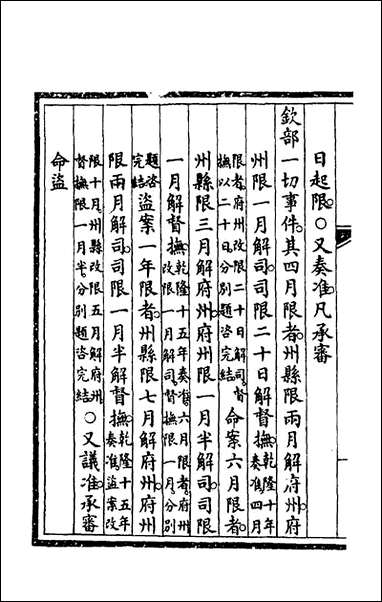 日起限○又奏准凡承審
欽部一切事件其四月限者州縣限兩月解府州府
州限一月解司司限二十日解督撫乾隆十年奏准四月
限者府州改限二十日解司督撫以二十日分別題咨完結命案六月限者
州縣限三月解府州府州限一月半解司司限
一月解督撫乾隆十五年奏准六月限者府州改限一月解司督撫限一月分別
題咨完結盜案一年限者州縣限七月解府州府州
限兩月解司司限一月半解督撫乾隆十五年奏准盜案改
限十月州縣改限五月解府州督撫限一月半分別題咨完結○又議准承審
命盜